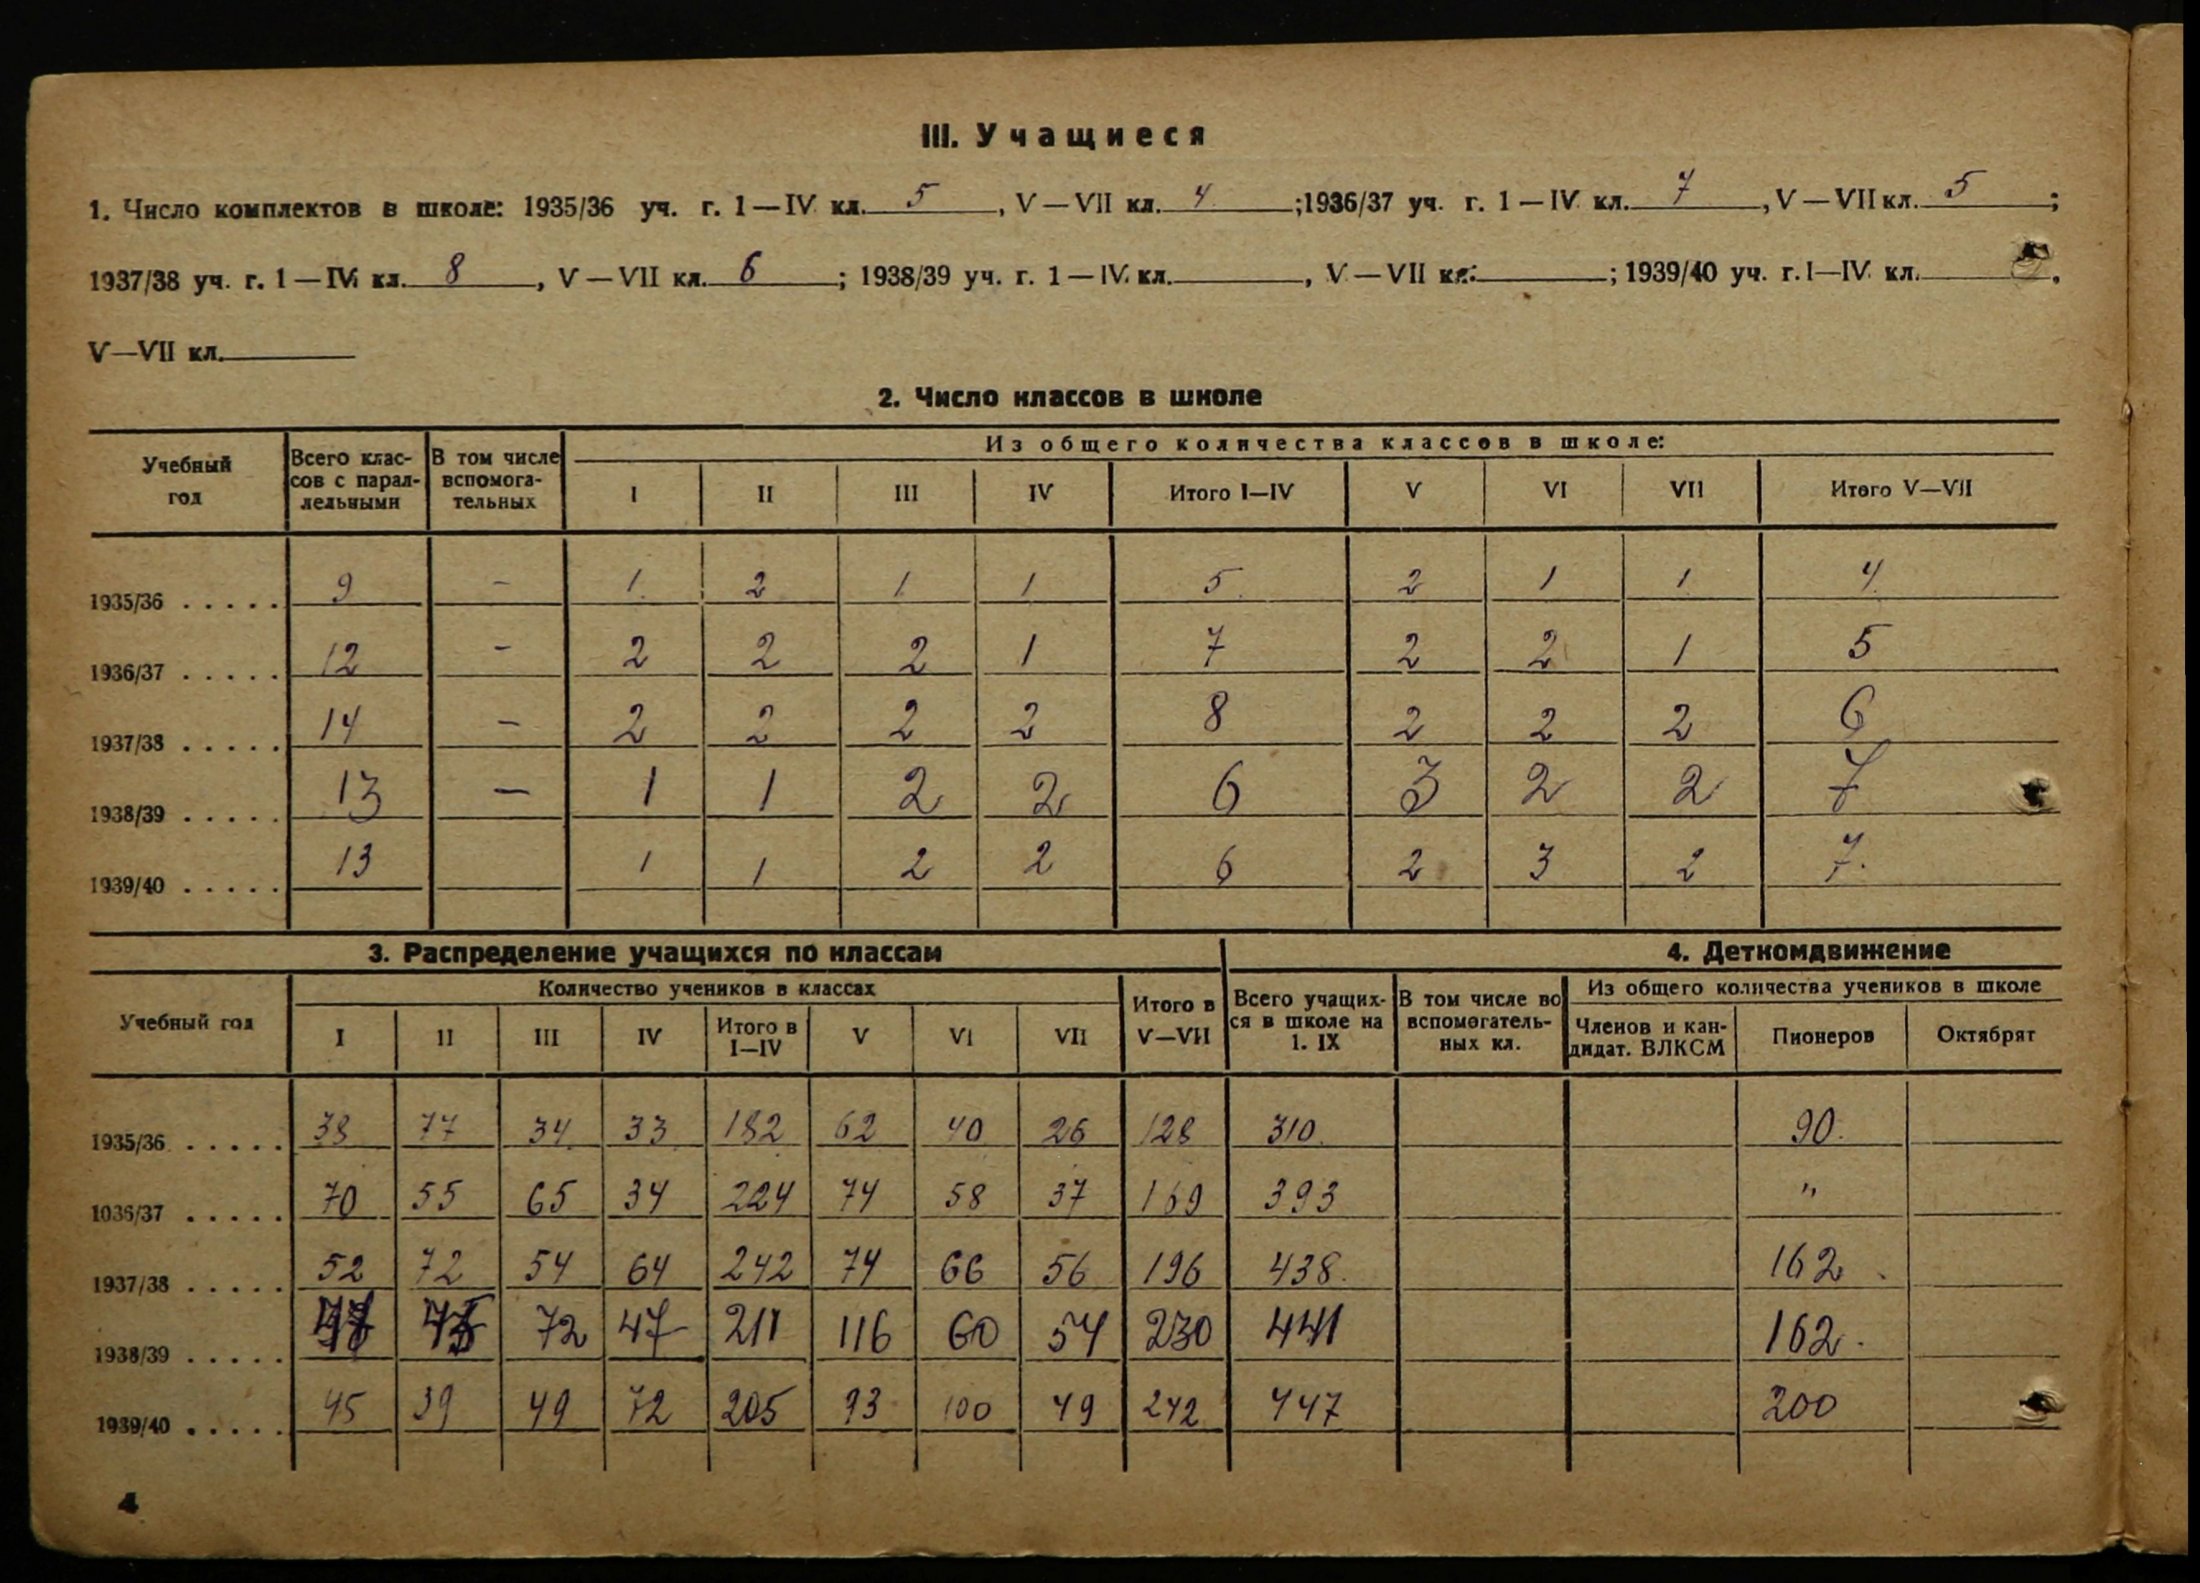 III. Учащиеся
1. Число комплектов в школе: 1935/36 уч. г. 1—IV кл. 5, V—VII кл. 4; 1936/37 уч. г. 1—IV кл. 7, V—VII кл. 5;
1937/38 уч. г. 1—IV кл. 8, V—VII кл. 6; 1938/39 уч. г. 1—IV кл. , V—VII кл. ; 1939/40 уч. г. I—IV кл. ,
V—VII кл.
2. Число классов в школе
Учебный год | Всего классов с параллельными | В том числе вспомогательных | Из общего количества классов в школе:
I | II | III | IV | Итого I—IV | V | VI | VII | Итого V—VII
1935/36 ..... 9 - 1 2 1 1 5 2 1 1 4
1936/37 ..... 12 - 2 2 2 1 7 2 2 1 5
1937/38 ..... 14 - 2 2 2 2 8 2 2 2 6
1938/39 ..... 13 - 1 1 2 2 6 3 2 2 7
1939/40 ..... 13 1 1 2 2 6 2 3 2 7.
3. Распределение учащихся по классам | 4. Деткомдвижение
Учебный год | Количество учеников в классах | Итого в V—VII | Всего учащихся в школе на 1. IX | В том числе во вспомогательных кл. | Из общего количества учеников в школе
I | II | III | IV | Итого в I—IV | V | VI | VII | Членов и кандидат. ВЛКСМ | Пионеров | Октябрят
1935/36 ..... 38 77 34 33 182 62 40 26 128 310. 90.
1036/37 ..... 70 55 65 34 224 74 58 37 169 393 "
1937/38 ..... 52 72 54 64 242 74 66 56 196 438. 162.
1938/39 ..... 72 47 211 116 60 54 230 441 162.
1939/40 ..... 45 39 49 72 205 93 100 49 242 447 200
4